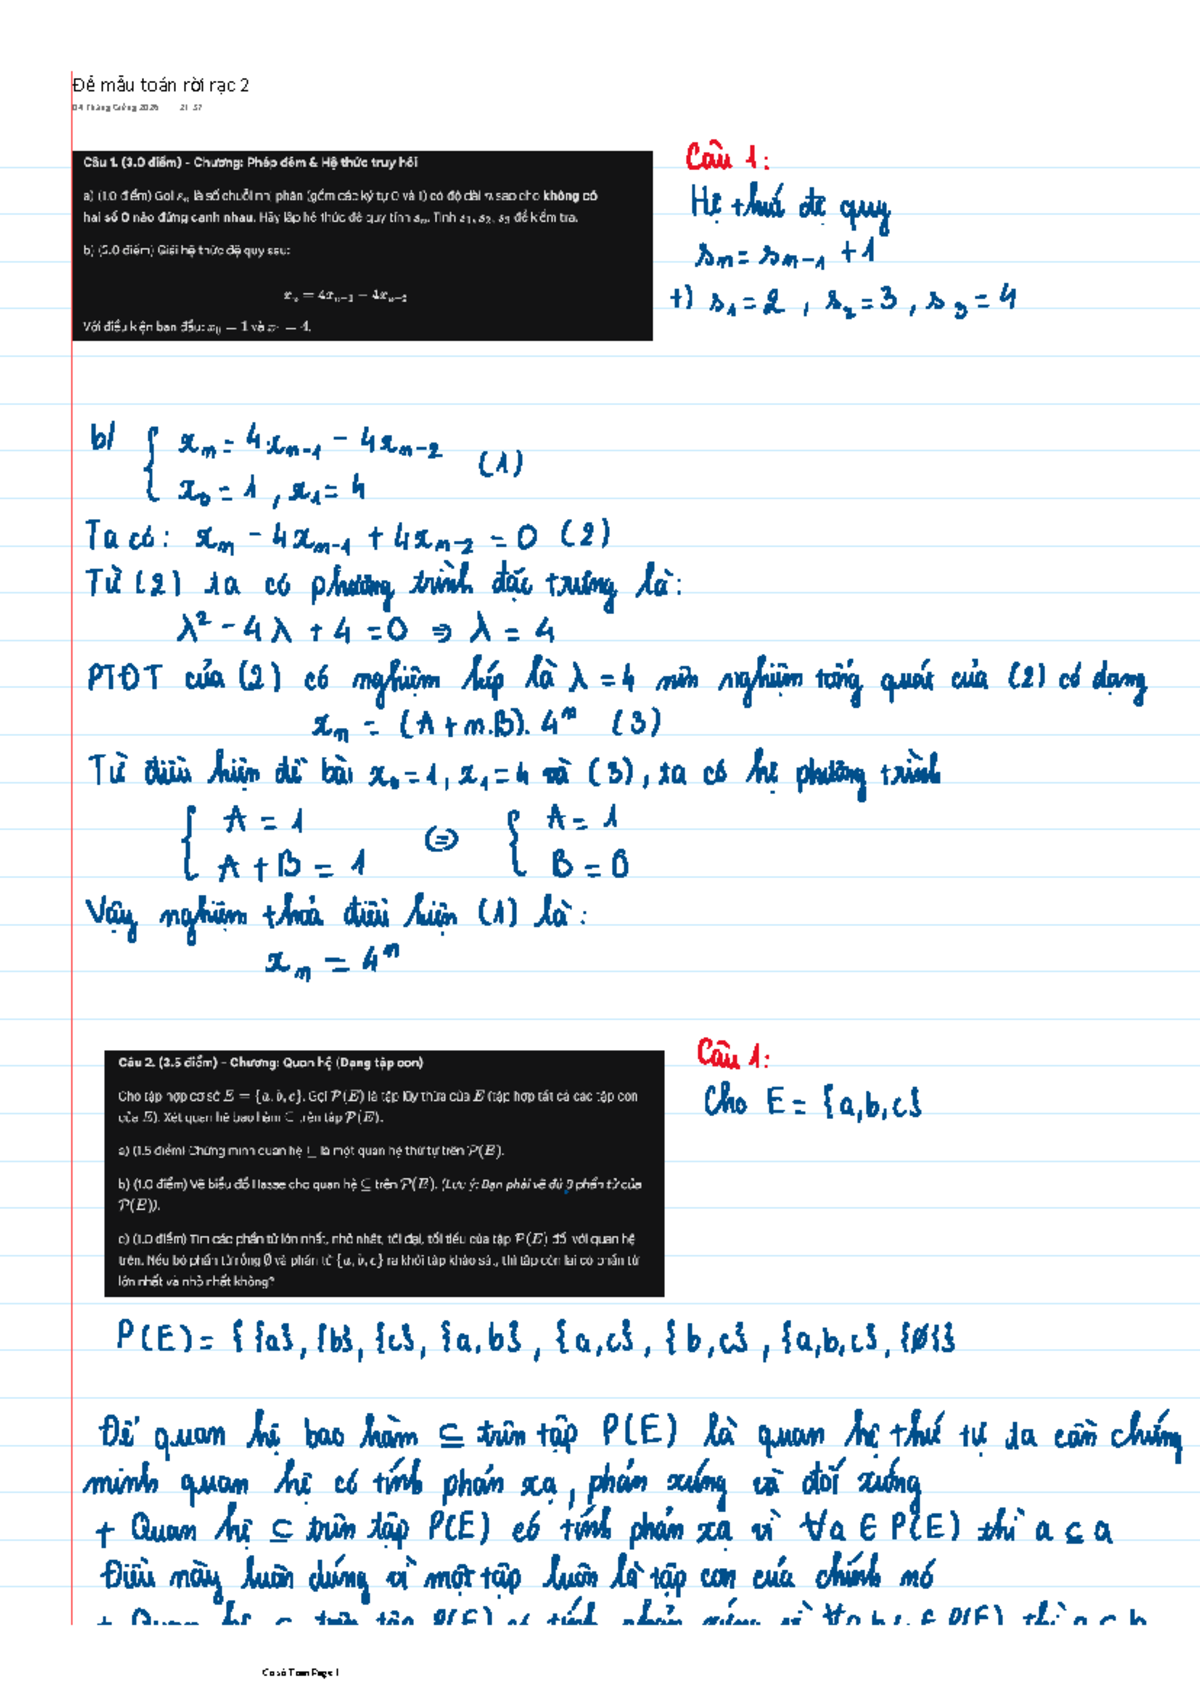 Đề mẫu toán rời rạc 2
04 Tháng Giêng 2026 21:37
Câu 1. (3.0 điểm) - Chương: Phép đếm & Hệ thức truy hồi
a) (1.0 điểm) Gọi sₙ là số chuỗi nhị phân (gồm các ký tự 0 và 1) có độ dài n sao cho không có
hai số 0 nào đứng cạnh nhau. Hãy lập hệ thức đệ quy tính sₙ. Tính s₁, s₂, s₃ để kiểm tra.
b) (2.0 điểm) Giải hệ thức đệ quy sau:
xₙ = 4xₙ₋₁ − 4xₙ₋₂
Với điều kiện ban đầu: x₀ = 1 và x₁ = 4.
Câu 1:
Hệ thức đệ quy
sₙ = sₙ₋₁ + 1
+) s₁ = 2 , s₂ = 3 , s₃ = 4
b/ { xₙ = 4xₙ₋₁ − 4xₙ₋₂
x₀ = 1 , x₁ = 4 (1)
Ta có: xₙ − 4xₙ₋₁ + 4xₙ₋₂ = 0 (2)
Từ (2) ta có phương trình đặc trưng là:
λ² − 4λ + 4 = 0 ⇒ λ = 4
PTĐT của (2) có nghiệm kép là λ = 4 nên nghiệm tổng quát của (2) có dạng
xₙ = (A + n.B). 4ⁿ (3)
Từ điều kiện đề bài x₀ = 1, x₁ = 4 và (3), ta có hệ phương trình
{ A = 1 ⇔ { A = 1
A + B = 1 B = 0
Vậy nghiệm thoả điều kiện (1) là:
xₙ = 4ⁿ
Câu 2. (3.5 điểm) - Chương: Quan hệ (Dạng tập con)
Cho tập hợp cơ sở E = {a, b, c}. Gọi P(E) là tập lũy thừa của E (tập hợp tất cả các tập con
của E). Xét quan hệ bao hàm ⊆ trên tập P(E).
a) (1.5 điểm) Chứng minh quan hệ ⊆ là một quan hệ thứ tự trên P(E).
b) (1.0 điểm) Vẽ biểu đồ Hasse cho quan hệ ⊆ trên P(E). (Lưu ý: Bạn phải vẽ đủ 8 phần tử của
P(E)).
c) (1.0 điểm) Tìm các phần tử lớn nhất, nhỏ nhất, tối đại, tối tiểu của tập P(E) đối với quan hệ
trên. Nếu bỏ phần tử rỗng ∅ và phần tử {a, b, c} ra khỏi tập khảo sát, thì tập còn lại có phần tử
lớn nhất và nhỏ nhất không?
Câu 1:
Cho E = {a,b,c}
P(E) = { {a}, {b}, {c}, {a,b} , {a,c} , {b,c} , {a,b,c}, {∅}}
Để quan hệ bao hàm ⊆ trên tập P(E) là quan hệ thứ tự ta cần chứng
minh quan hệ có tính phản xạ, phản xứng và đối xứng
+ Quan hệ ⊆ trên tập P(E) có tính phản xạ vì ∀a ∈ P(E) thì a ⊆ a
Điều này luôn đúng vì một tập luôn là tập con của chính nó
Cơ sở Toán Page 1